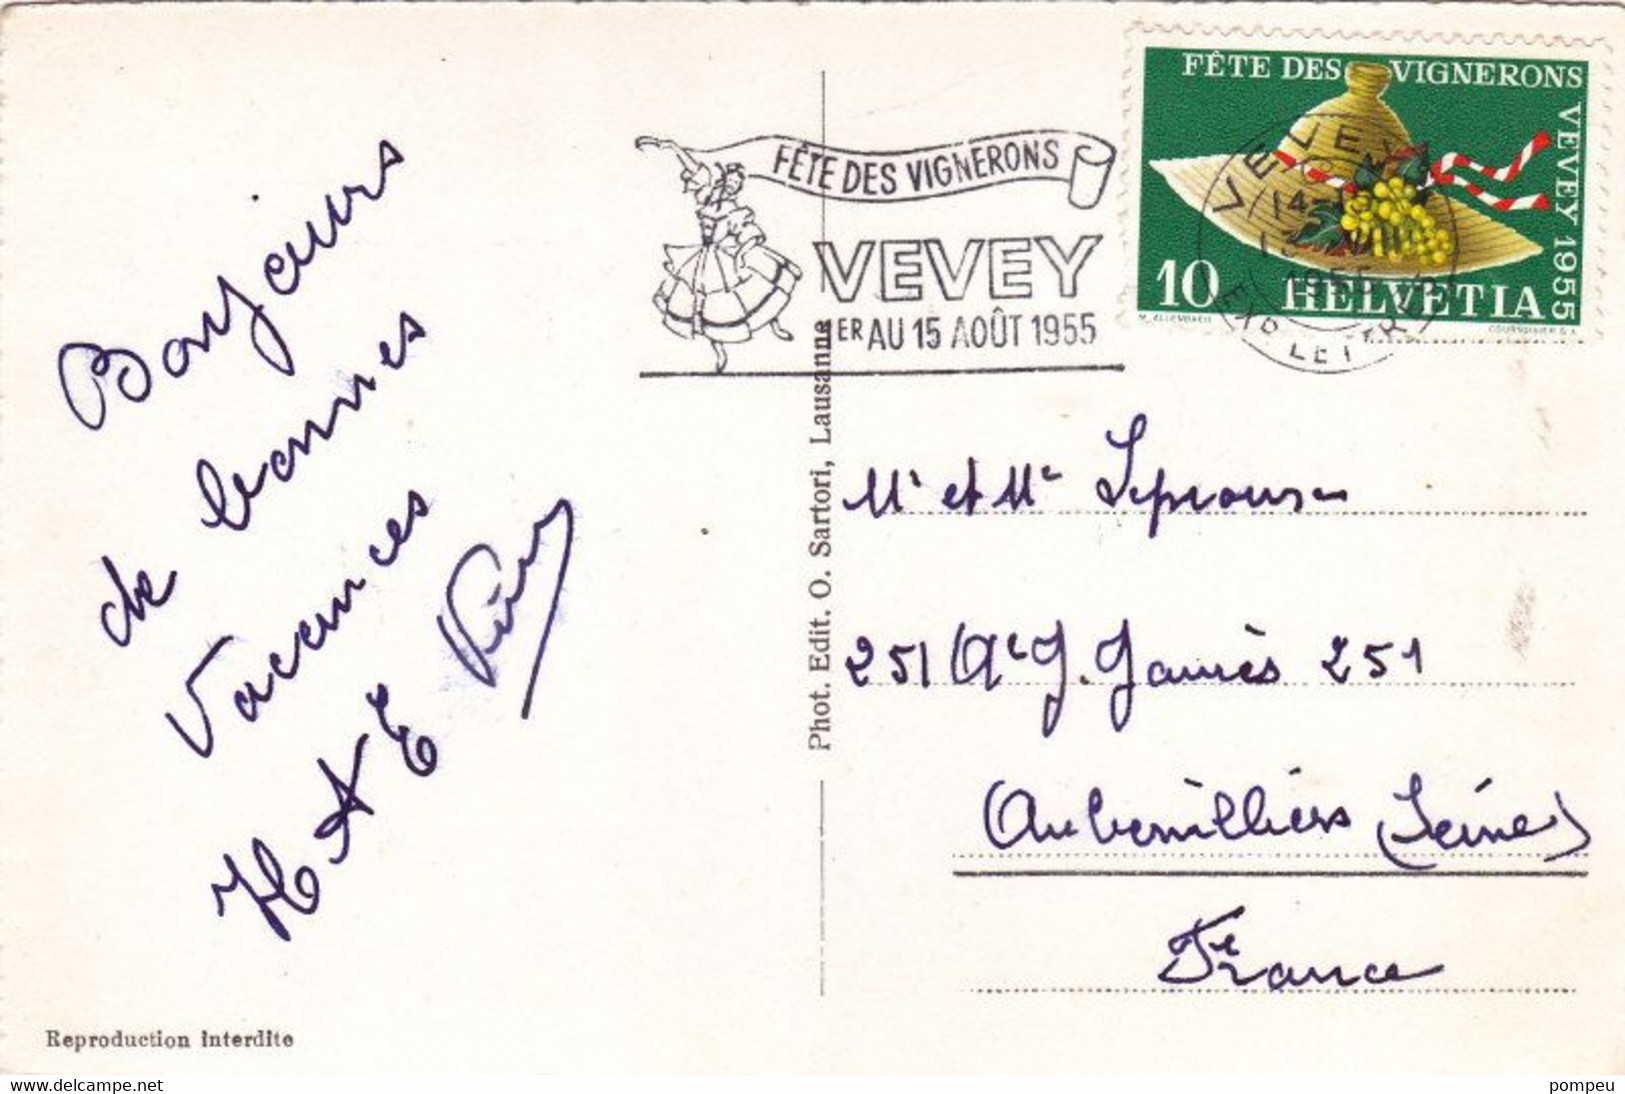 Bonjours
de bonnes
Vacances
H A E
FÊTE DES VIGNERONS
VEVEY
1ER AU 15 AOÛT 1955
FÊTE DES VIGNERONS
VEVEY 1955
10 HELVETIA
M. ALLENBACH
COURVOISIER S.A.
VEVEY
1955
EXP. LETTRES
Phot. Edit. O. Sartori, Lausanne
Mr et Me Leprouse
251 Ae J. Jaurès 251
Aubervilliers (Seine)
France
Reproduction interdite
www.delcampe.net
pompeu